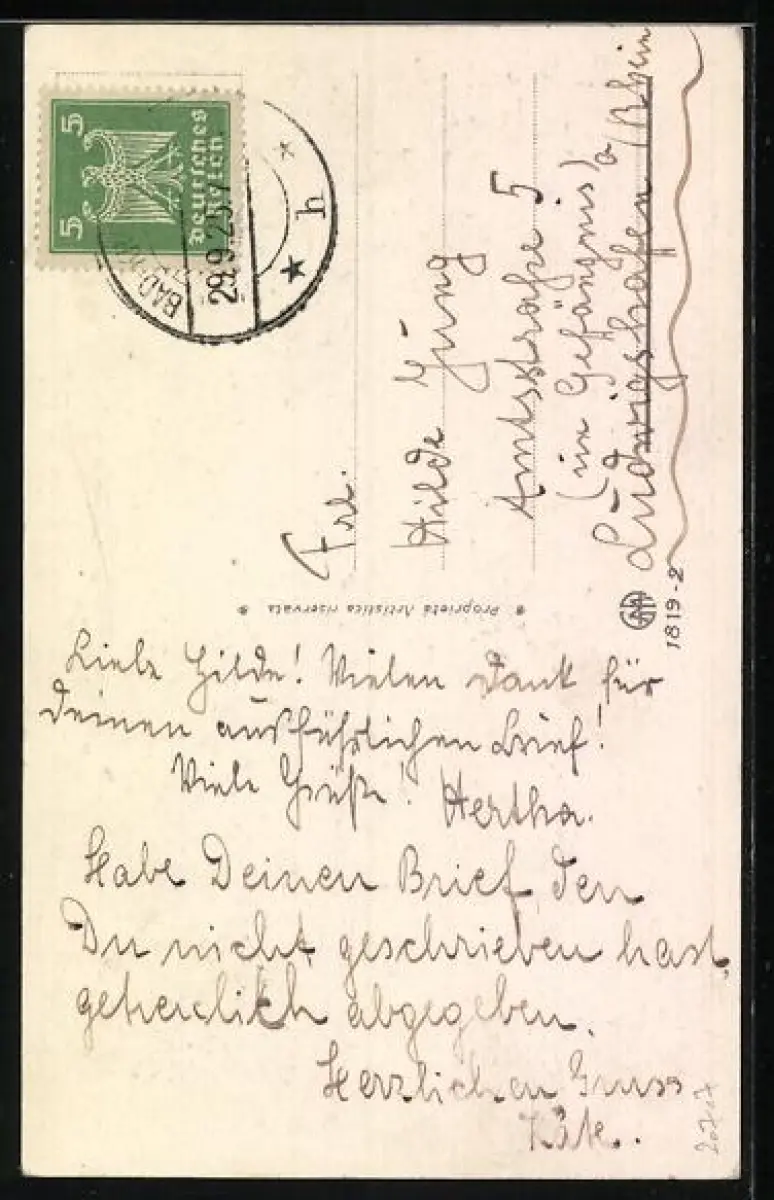 5 5
Deutsches
Reich
BAD
29.9.25.
h
Frl.
Hilde Jung
Amtsstraße 5
(im Gefängnis)
Ludwigshafen a/Rhein
Proprietà Artistica riservata
1819-2
Liebe Hilde! Vielen Dank für
deinen ausführlichen Brief!
Viele Grüße! Hertha.
Habe Deinen Brief, den
Du nicht geschrieben hast,
getreulich abgegeben.
Herzlichen Gruss
Käte.